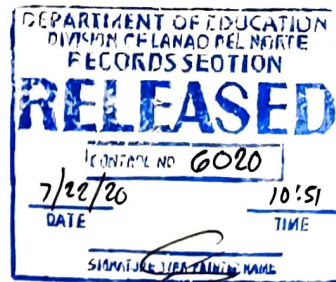 DEPARTMENT OF EDUCATION
DIVISION OF LANAO DEL NORTE
RECORDS SECTION
RELEASED
CONTROL NO 6020
7/22/20 10:51
DATE TIME
SIGNATURE NAME